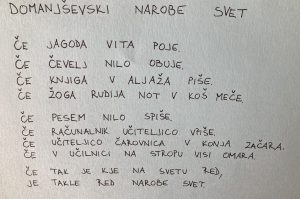 DOMANJŠEVSKI NAROBE SVET
ČE JAGODA VITA POJE.
ČE ČEVELJ NILO OBUJE.
ČE KNJIGA V ALJAŽA PIŠE.
ČE ŽOGA RUDIJA NOT V KOŠ MEČE.
ČE PESEM NILO SPIŠE.
ČE RAČUNALNIK UČITELJICO VPIŠE.
ČE UČITELJICO ČAROVNICA V KONJA ZAČARA.
ČE V UČILNICI NA STROPU VISI OMARA.
ČE TAK JE KJE NA SVETU RED,
JE TAKLE RED NAROBE SVET.